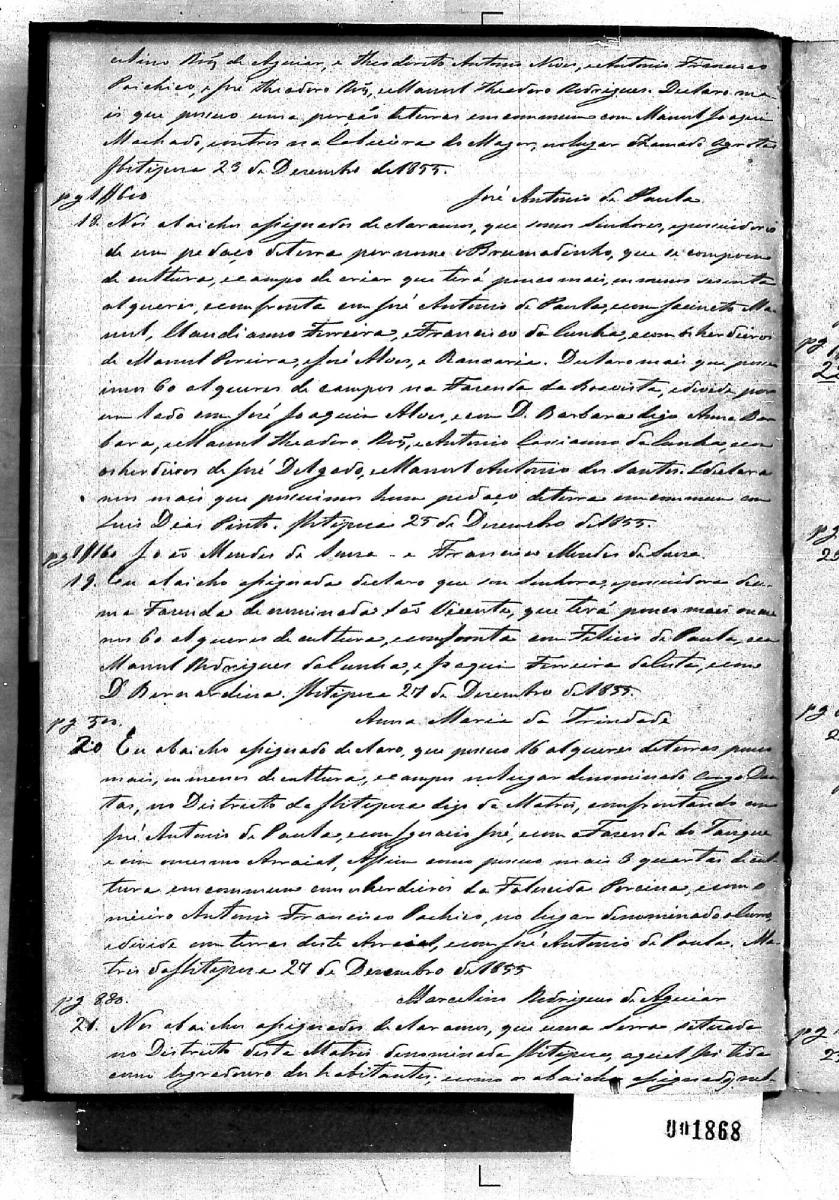 celino Roiz de Aguiar, e Theodoreto Antonio Neves, e Antonio Francisco
Pachico, e José Theodoro Roiz, e Manuel Theodoro Rodrigues. Declaro ma-
is que possuo uma porção de terras em commum com Manuel Joaquim
Machado, e outros na Cabeceira do Major, no lugar chamado
Ibitipoca 23 de Dezembro de 1855.
pg 1//600 José Antonio de Paula
18. Nos abaicho assignados declaramos, que somos Senhores, e possuidores
de um pedaço de terra por nome o Brumadinho, que se compoem
de cultura, e campo de criar que terá pouco mais, ou menos secenta
alqueres, e comfronta com José Antonio de Paula, e com Jacinto Ma-
nuel, Claudianno Ferreira, e Francisco da Cunha, e com os herdeiros
de Manuel Pereira, e José Alves, e Declaro mais que possu-
imos 60 alqueres de campos na Fazenda da Boavista, e divide por
um lado com José Joaquim Alves, e com D. Barbara digo Anna Bar-
bara, e Manuel Theodoro Roiz, e Antonio Cassianno da Cunha, e com
os herdeiros de José Delgado, e Manuel Antonio dos Santos. E declara
mos mais que possuimos hum pedaço de terra em commum com
Luis Dias Pinto. Ibitipoca 25 de Dezembro de 1855.
pg 1//160 João Mendes de Souza - e Francisco Mendes de Souza
19. Eu abaicho assignada declaro que sou Senhora, e possuidora de u-
ma Fazenda denominada São Vicente, que terá pouco mais ou me
nos 60 alqueres de cultura, e comfronta com Felicio de Paula, e com
Manuel Rodrigues da Cunha, e Joaquim Ferreira da Costa, e com
D. Bernardina. Ibitipoca 27 de Dezembro de 1855.
pg 500. Anna Maria da Trindade
20 Eu abaicho assignado declaro, que possuo 16 alqueres de terras pouco
mais, ou menos de cultura, e campos no lugar denominado
no Districto da Ibitipoca digo da Matris, comfrontando com
José Antonio de Paula, e com Ignacio José, e com a Fazenda do Tanque
e com o mesmo Arraial, Assim como possuo mais 3 quartas de cul-
tura em commum com os herdeiros da Falecida Pereira, e com o
meeiro Antonio Francisco Pachico, no lugar denominado
e divide com terras deste Arraial, e com José Antonio de Paula. Ma-
tris da Ibitipoca 27 de Dezembro de 1855
pg 880. Marcelino Rodrigues de Aguiar
21. Nos abaicho assignados declaramos, que uma Serra situada
no Districto desta Matris denominada Ibitipoca, aqual foi tida
como logradouro dos habitantes, e como os abaicho assignados
001868